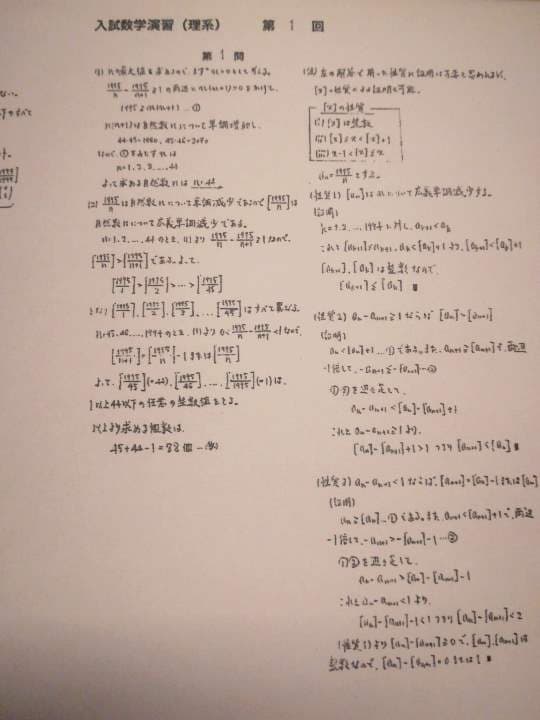 入試数学演習(理系) 第 1 回
第 1 問
(1) nの最大値を求めるので、まずn>0として考える。
1995/n - 1995/n+1 ≧1の両辺にn(n+1)(>0)をかけて、
1995≧n(n+1) …①
n(n+1)は自然数nについて単調増加し、
44・45=1980, 45・46=2070
なので、①をみたすnは
n=1, 2, …, 44
よって求める自然数nは n=44
(2) 1995/n は自然数nについて単調減少であるので[1995/n]は
自然数nについて広義単調減少である。
n=1, 2, …, 44のとき、(1)より 1995/n - 1995/n+1 ≧1なので、
[1995/n]>[1995/n+1]である。よって、
[1995/1]>[1995/2]>…>[1995/45]
となり [1995/1], [1995/2], [1995/3], …, [1995/45]はすべて異なる。
n=45, 46, …, 1994のとき、(1)より 0< 1995/n - 1995/n+1 <1なので、
[1995/n+1]=[1995/n]-1または[1995/n]
よって、[1995/45](=44), [1995/46], …, [1995/1995](=1)は、
1以上44以下の任意の整数値をとる。
以上より求める個数は、
45+44-1=88個
(注) 左の解答で用いた性質に証明は不要と思われるが、
[x]の性質による証明も可能。
[x]の性質
(i) [x]は整数
(ii) [x]≦x<[x]+1
(iii) x-1<[x]≦x
an=1995/n とする。
(性質1) [an]はnについて広義単調減少する。
(証明)
n=1, 2, …, 1994に対し、an+1<an
これと[an+1]≦an+1, an<[an]+1より、[an+1]<[an]+1
[an+1], [an]は整数なので、
[an+1]≦[an] ■
(性質2) an-an+1≧1ならば [an]>[an+1]
(証明)
an<[an]+1 …①である。また、an+1≧[an+1]で、両辺
-1倍して、-an+1≦-[an+1] …②
①②を辺々足して、
an-an+1<[an]-[an+1]+1
これとan-an+1≧1より、
[an]-[an+1]+1>1 つまり [an+1]<[an] ■
(性質3) an-an+1<1ならば、[an+1]=[an]-1または[an]
(証明)
an≧[an] …①である。また、an+1<[an+1]+1で、両辺
-1倍して、-an+1>-[an+1]-1 …②
①②を辺々足して、
an-an+1>[an]-[an+1]-1
これとan-an+1<1より、
[an]-[an+1]-1<1 つまり [an]-[an+1]<2
(性質1)より[an]-[an+1]≧0で、[an], [an+1]は
整数なので、[an]-[an+1]=0または1 ■